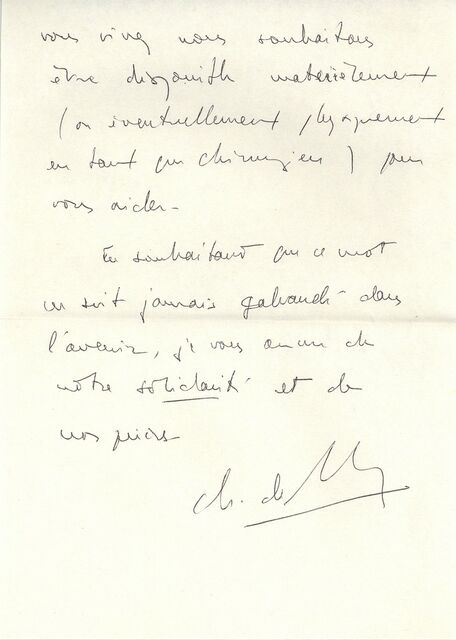 vous vivez nous souhaitons
être disponible matériellement
(ou éventuellement physiquement
en tant que chirurgien) pour
vous aider-
En souhaitant que ce mot
ne soit jamais galvaudé dans
l'avenir, je vous assure de
notre solidarité et de
nos prières
ch. de